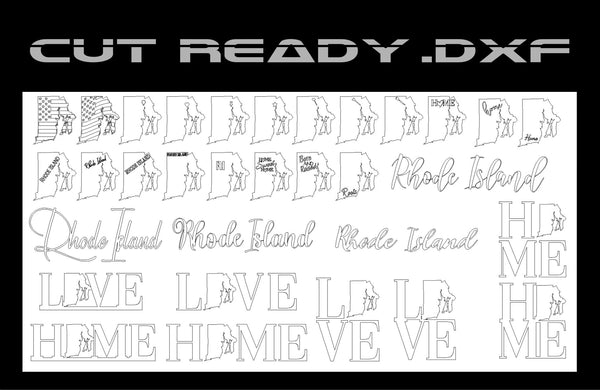 CUT READY .DXF
HOME
home
Home
RHODE ISLAND
Rhode Island
RHODE ISLAND
RHODE ISLAND
RI
HOME
SWEET
HOME
BORN
AND
RAISED
Roots
Rhode Island
Rhode Island
Rhode Island
Rhode Island
HO
ME
LOVE
LOVE
LO
VE
LO
VE
HO
ME
HOME
HOME